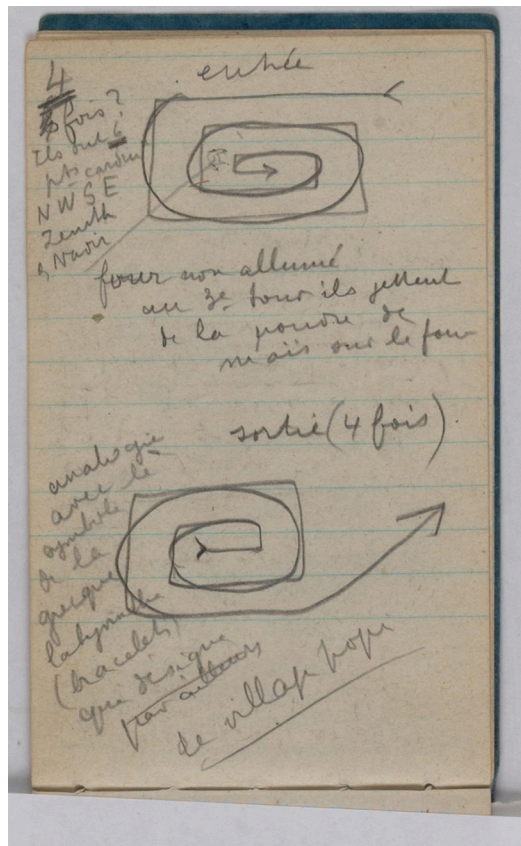 entrée
4
fois?
Ils ont 6
pts cardin
N W S E
Zenith
& Nadir
four non allumé
au 3e tour ils jettent
de la poudre de
maïs sur le four
sortie (4 fois)
analogie
avec le
symbole
de la
grecque
labyrinthe
(bracelets)
qui désigne
par ailleurs
le village hopi